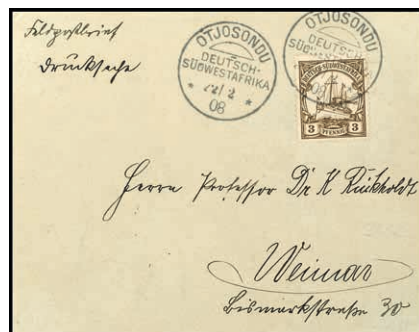 Feldpostbrief
Drucksache
OTJOSONDU
DEUTSCH-
SÜDWESTAFRIKA
08
OTJOSONDU
DEUTSCH-
SÜDWESTAFRIKA
08
3 PFENNIG 3
Herrn Professor Dr K Rückoldt
Weimar
Bismarkstraße 30